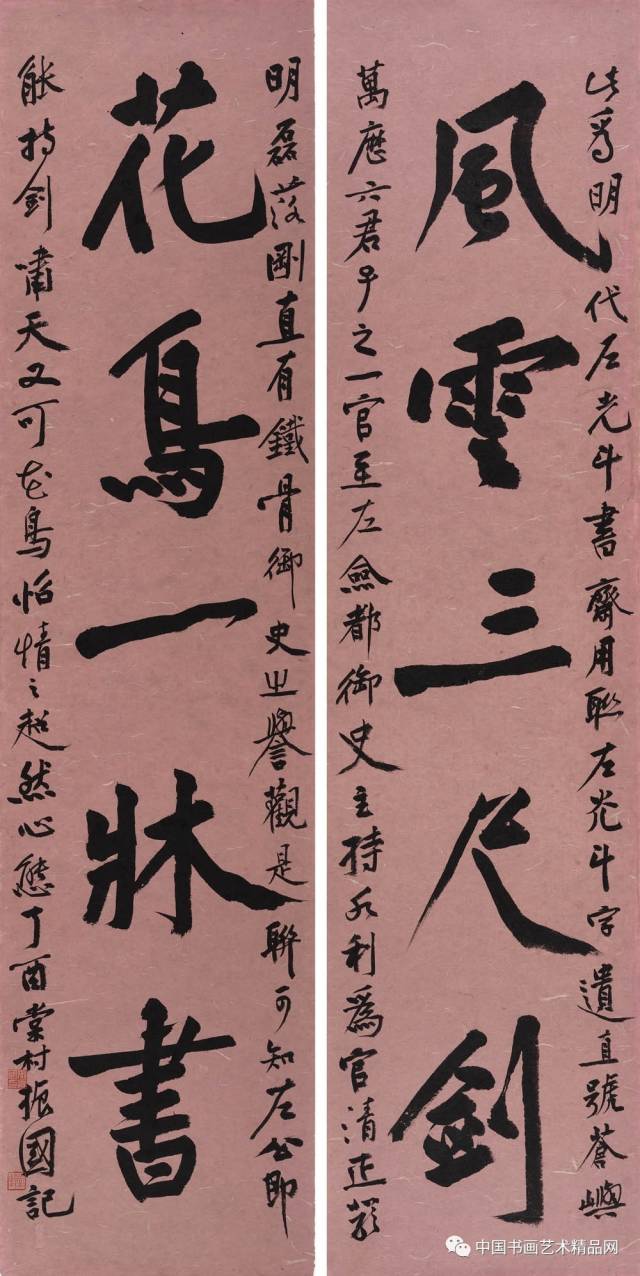 此爲明代左光斗書齋用聯左光斗字遺直號蒼嶼
風雲三尺劍
萬厯六君子之一官至左僉都御史主持水利爲官清正嚴
明磊落剛直有鐵骨御史之譽觀是聯可知左公即
花鳥一牀書
能持劍嘯天又可花鳥怡情之超然心態丁酉棠村振國記
中国书画艺术精品网